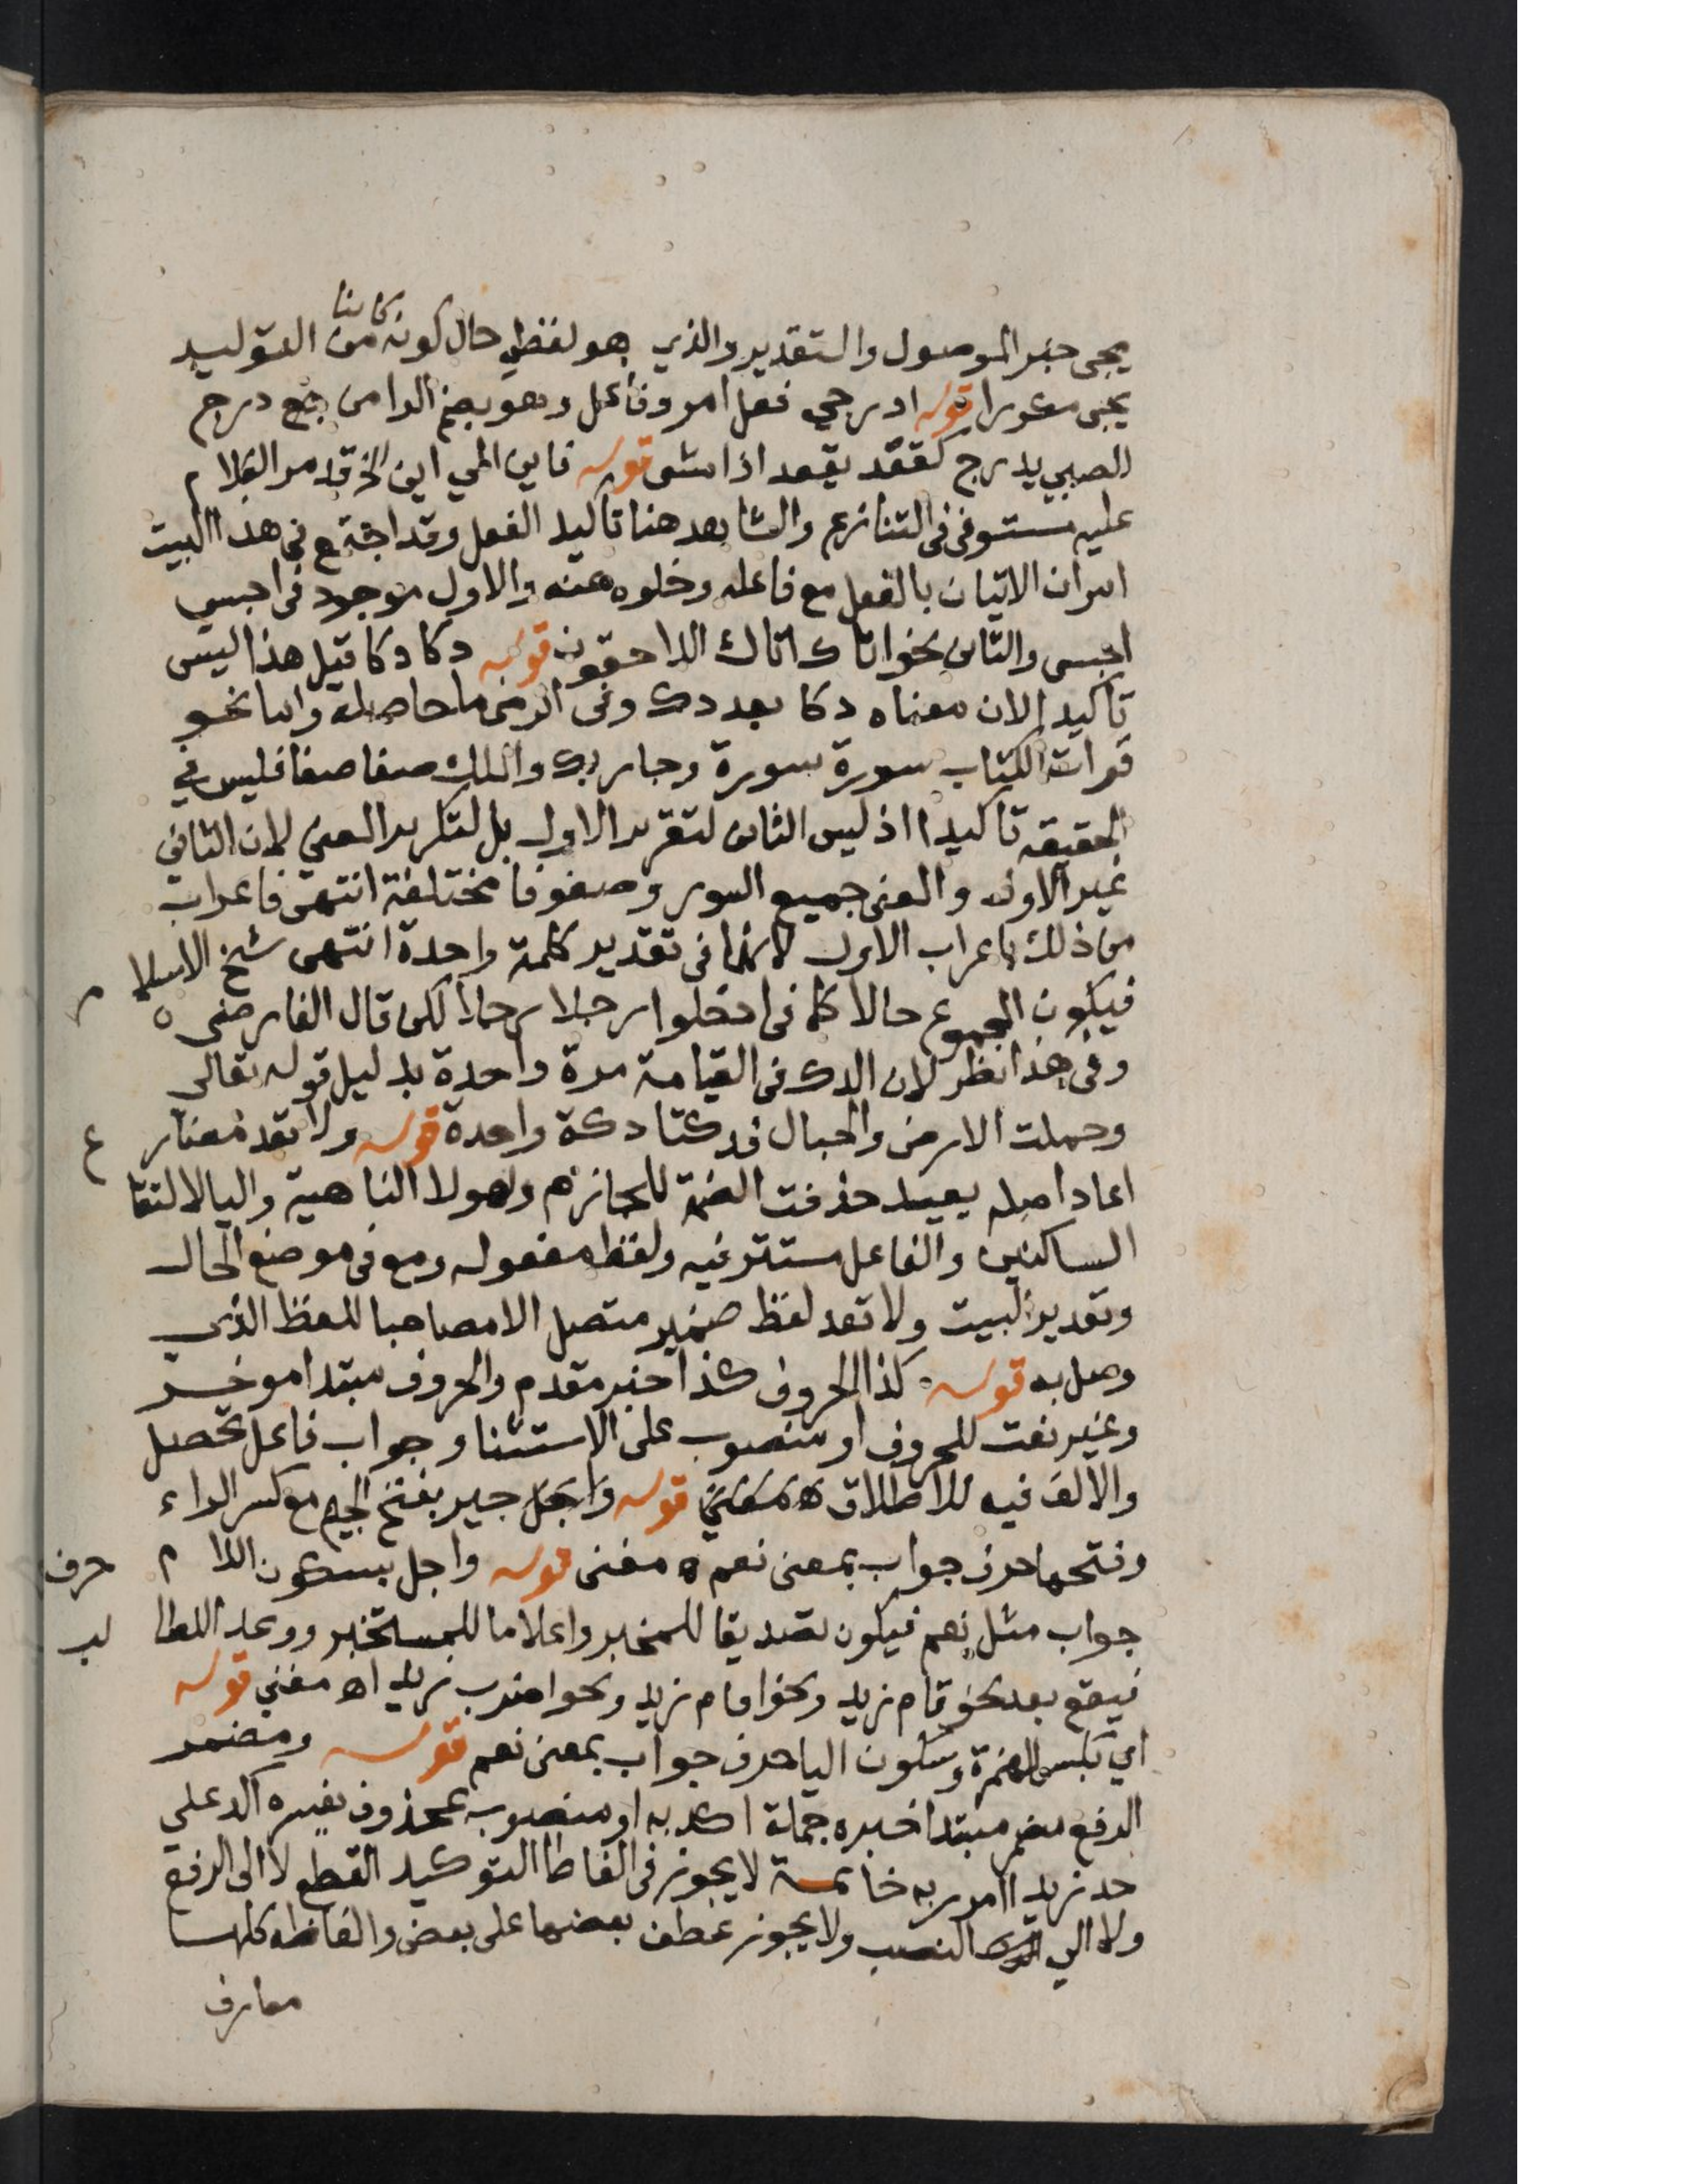 يجى خبر الموصول والتقدير والذي هو لفظي حال كونه كاينا من التوليد
يجى مكررا قوله ادرجي فعل امر وفاعل وهو بضم الرا من درج
الصبي يدرج كقعد يقعد اذا مشى قوله فاين الى اين الخ قد مر الكلام
عليه مستوفى فى التنازع والشاهد هنا تاكيد الفعل وقد اجتمع فى هذا البيت
امران الاتيان بالفعل مع فاعله وخلوه عنه والاول موجود فى احبس
احبس والثانى نحو اتاك اتاك اللاحقون قوله دكا دكا قيل هذا ليس
تاكيدا لان معناه دكا بعد دك وفى الرضى ما حاصله واما نحو
قرات الكتاب سورة سورة وجا ربك والملك صفا صفا فليس في
الحقيقه تاكيدا اذ ليس الثانى لتقرير الاول بل لتكرير المعني لان الثاني
غير الاول والمعنى جميع السور وصفوفا مختلفة انتهى فاعراب
من ذلك باعراب الاول لانهما فى تقدير كلمة واحدة انتهى شيخ الاسلام
فيكون المجموع حالا كما فى ادخلوا رجلا رجلا لكن قال الفارضى ه
وفى هذا نظر لان الدك فى القيامة مرة واحدة بدليل قوله تعالى
وحملت الارض والجبال فدكتا دكة واحدة قوله ولا تعد مضارع
اعاد اصله يعيد حذفت الضمة للجازم وهو لا الناهية واليا لالتقا
الساكنين والفاعل مستتر فيه ولفظ مفعوله ومع فى موضع الحال
وتقدير البيت ولا تعد لفظ ضمير متصل الا مصاحبا للفظ الذى
وصل به قوله كذا الحروف كذا خبر مقدم والحروف مبتدا موخر
وغير نعت للحروف او منصوب على الاستثنا وجواب فاعل تحصل
والالف فيه للاطلاق قوله واجل جير بفتح الجيم مع كسر الراء
وفتحها حرف جواب بمعنى نعم ه مغنى قوله واجل بسكون اللام حرف
جواب مثل نعم فيكون تصديقا للمخبر واعلاما للمستخبر ووعدا للطالب
فيقع بعد نحو قام زيد ونحو اقام زيد ونحو اضرب زيدا اه مغني قوله
اي بكسر الهمزة وسكون اليا حرف جواب بمعنى نعم قوله ومضمر
الرفع مضمر مبتدا خبره جملة اكد به او منصوب بمحذوف يفسره اكد على
حد زيدا امرر به خاتمة لا يجوز فى الفاظ التوكيد القطع لا الى الرفع
ولا الي النصب ولا يجوز عطف بعضها على بعض والفاظه كلها
معارف